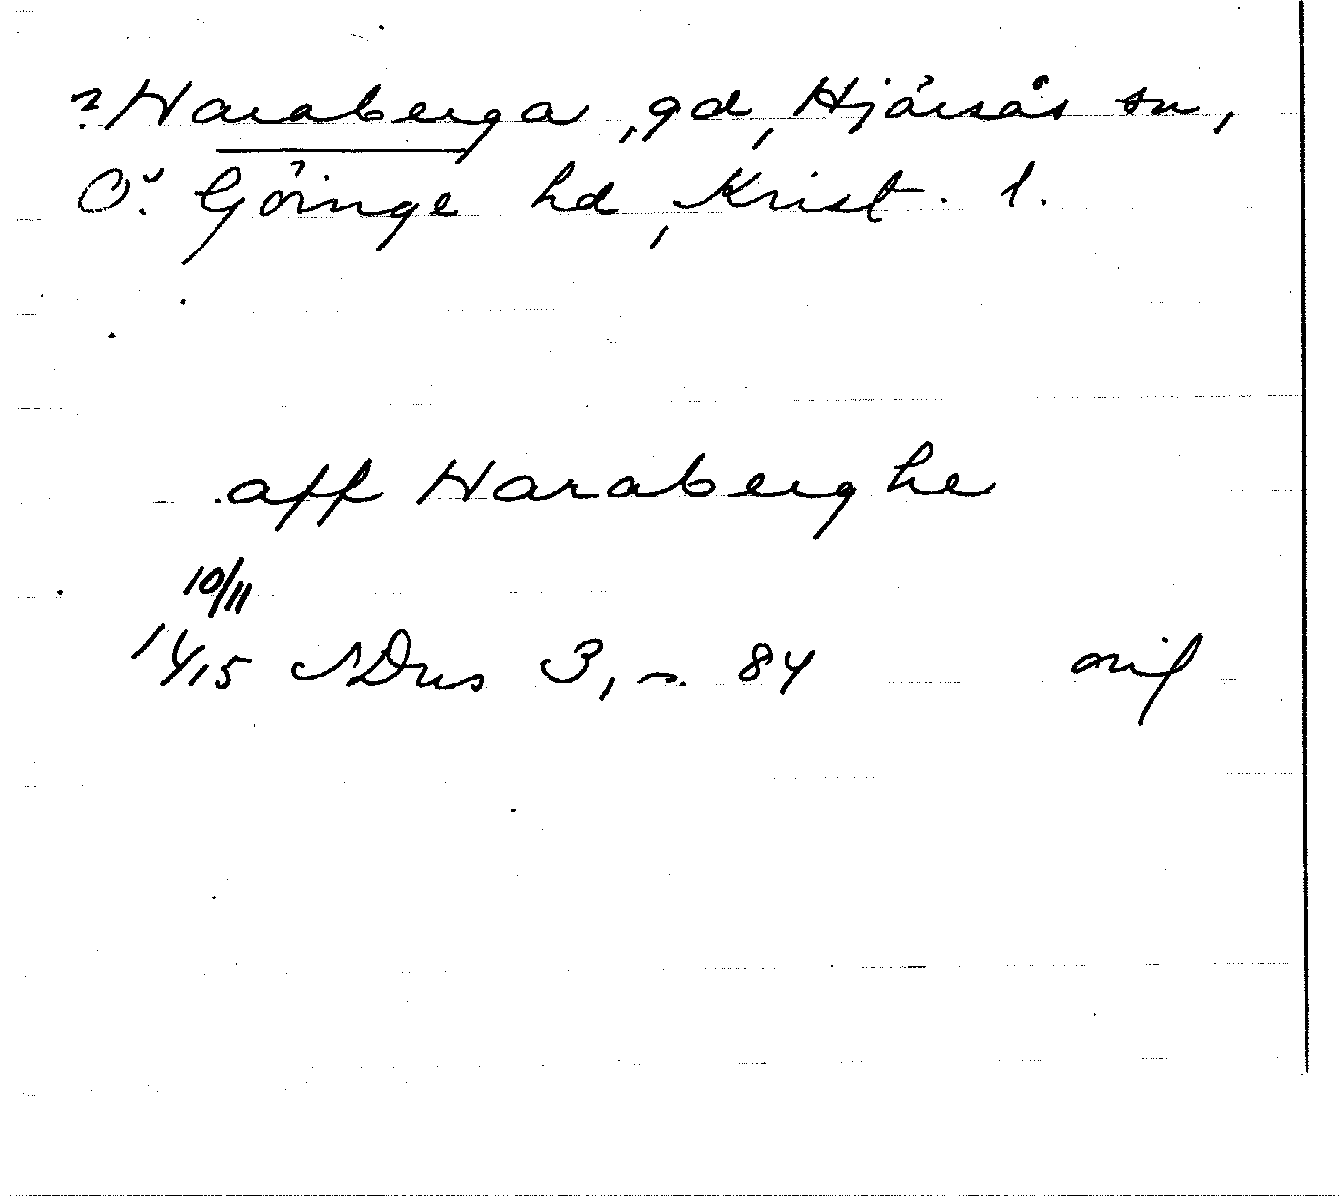 ? Haraberga, gd, Hjärsås sn,
Ö. Göinge hd, Krist. l.
aff Haraberghe
10/11
1415 SDns 3, s. 84 mif